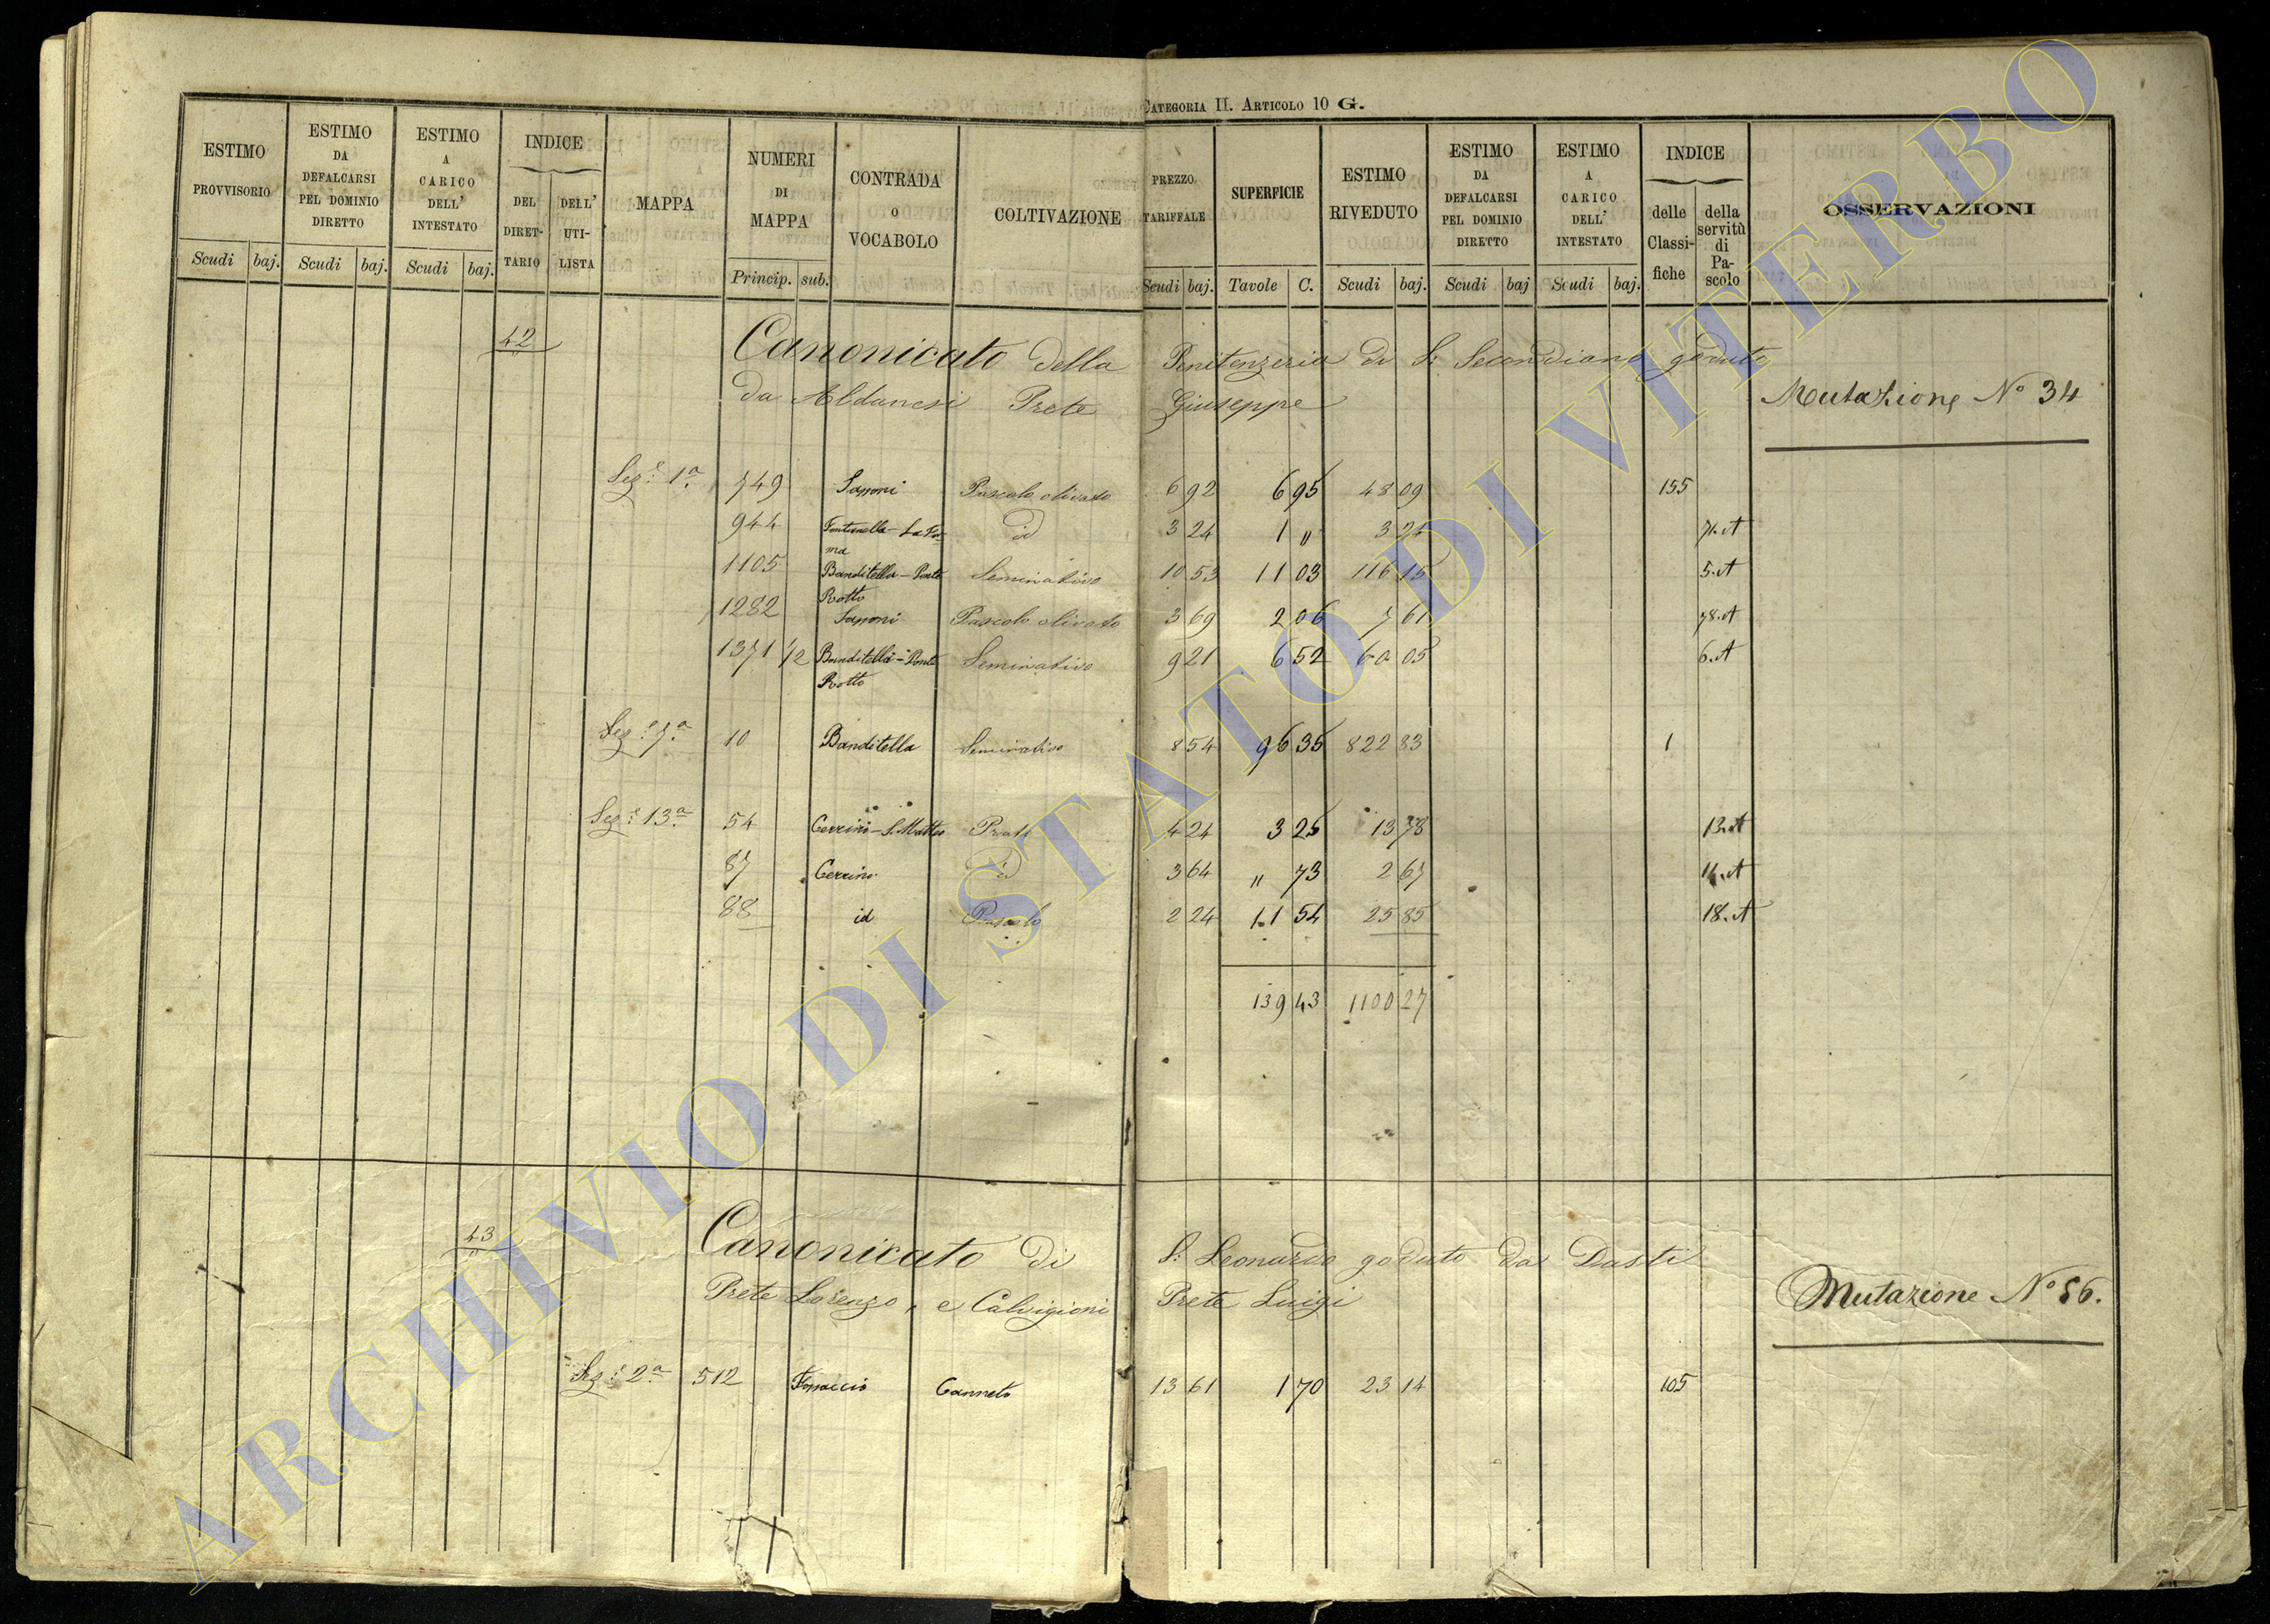 CATEGORIA II. ARTICOLO 10 G.
ESTIMO PROVVISORIO Scudi baj.
ESTIMO DA DEFALCARSI PEL DOMINIO DIRETTO Scudi baj.
ESTIMO A CARICO DELL' INTESTATO Scudi baj.
INDICE DEL DIRET-TARIO DELL' UTI-LISTA
MAPPA
NUMERI DI MAPPA Princip. sub.
CONTRADA O VOCABOLO
COLTIVAZIONE
PREZZO TARIFFALE Scudi baj.
SUPERFICIE Tavole C.
ESTIMO RIVEDUTO Scudi baj.
ESTIMO DA DEFALCARSI PEL DOMINIO DIRETTO Scudi baj
ESTIMO A CARICO DELL' INTESTATO Scudi baj.
INDICE delle Classi-fiche della servitù di Pa-scolo
OSSERVAZIONI
42 Canonicato della Penitenzeria di S. Secondiano goduto
da Aldanesi Prete Giuseppe
Mutazione N° 34
Sez.e 1a 749 Sasponi Pascolo olivato 6 92 6 95 48 09 155
944 Fontanella - La For=ma id 3 24 1 " 3 24 71.A
1105 Banditella - Ponte Rotto Seminativo 10 53 11 03 116 15 5.A
1282 Pascolo olivato 3 69 2 06 7 61 78.A
1371 1/2 Banditella - Ponte Rotto Seminativo 9 21 6 52 60 05 6.A
Sez.e 7a 10 Banditella Seminativo 8 54 96 35 822 83 1
Sez.e 13a 54 Cerrino - S. Matteo Prato 4 24 3 25 13 78 13.A
87 Cerrino id 3 64 " 73 2 67
88 id Pascolo 2 24 11 54 25 85 18.A
139 43 1100 27
43 Canonicato di S. Leonardo goduto da Dasti
Prete Lorenzo, e Calvigioni Prete Luigi
Mutazione N° 56.
Sez.e 2a 512 Canneto 13 61 1 70 23 14 105
ARCHIVIO DI STATO DI VITERBO